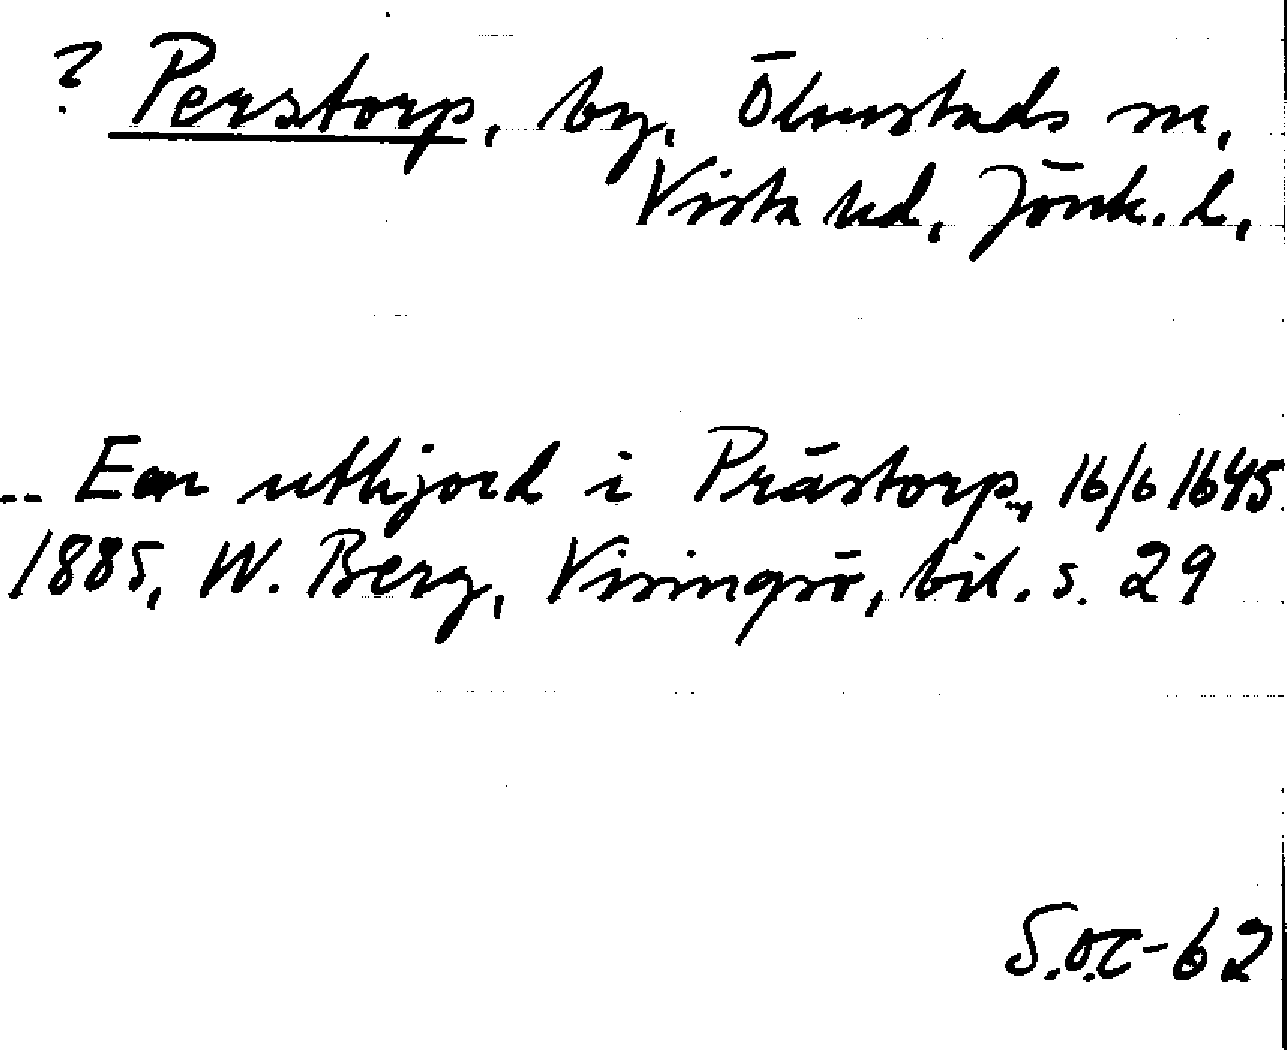 ? Perstorp, by, Ölmstads sn,
Vista hd, Jönk. l.
-- Een uthjord i Prästorp, 16/6 1645
1885, W. Berg, Visingsö, bil. s. 29
S.O.T-62